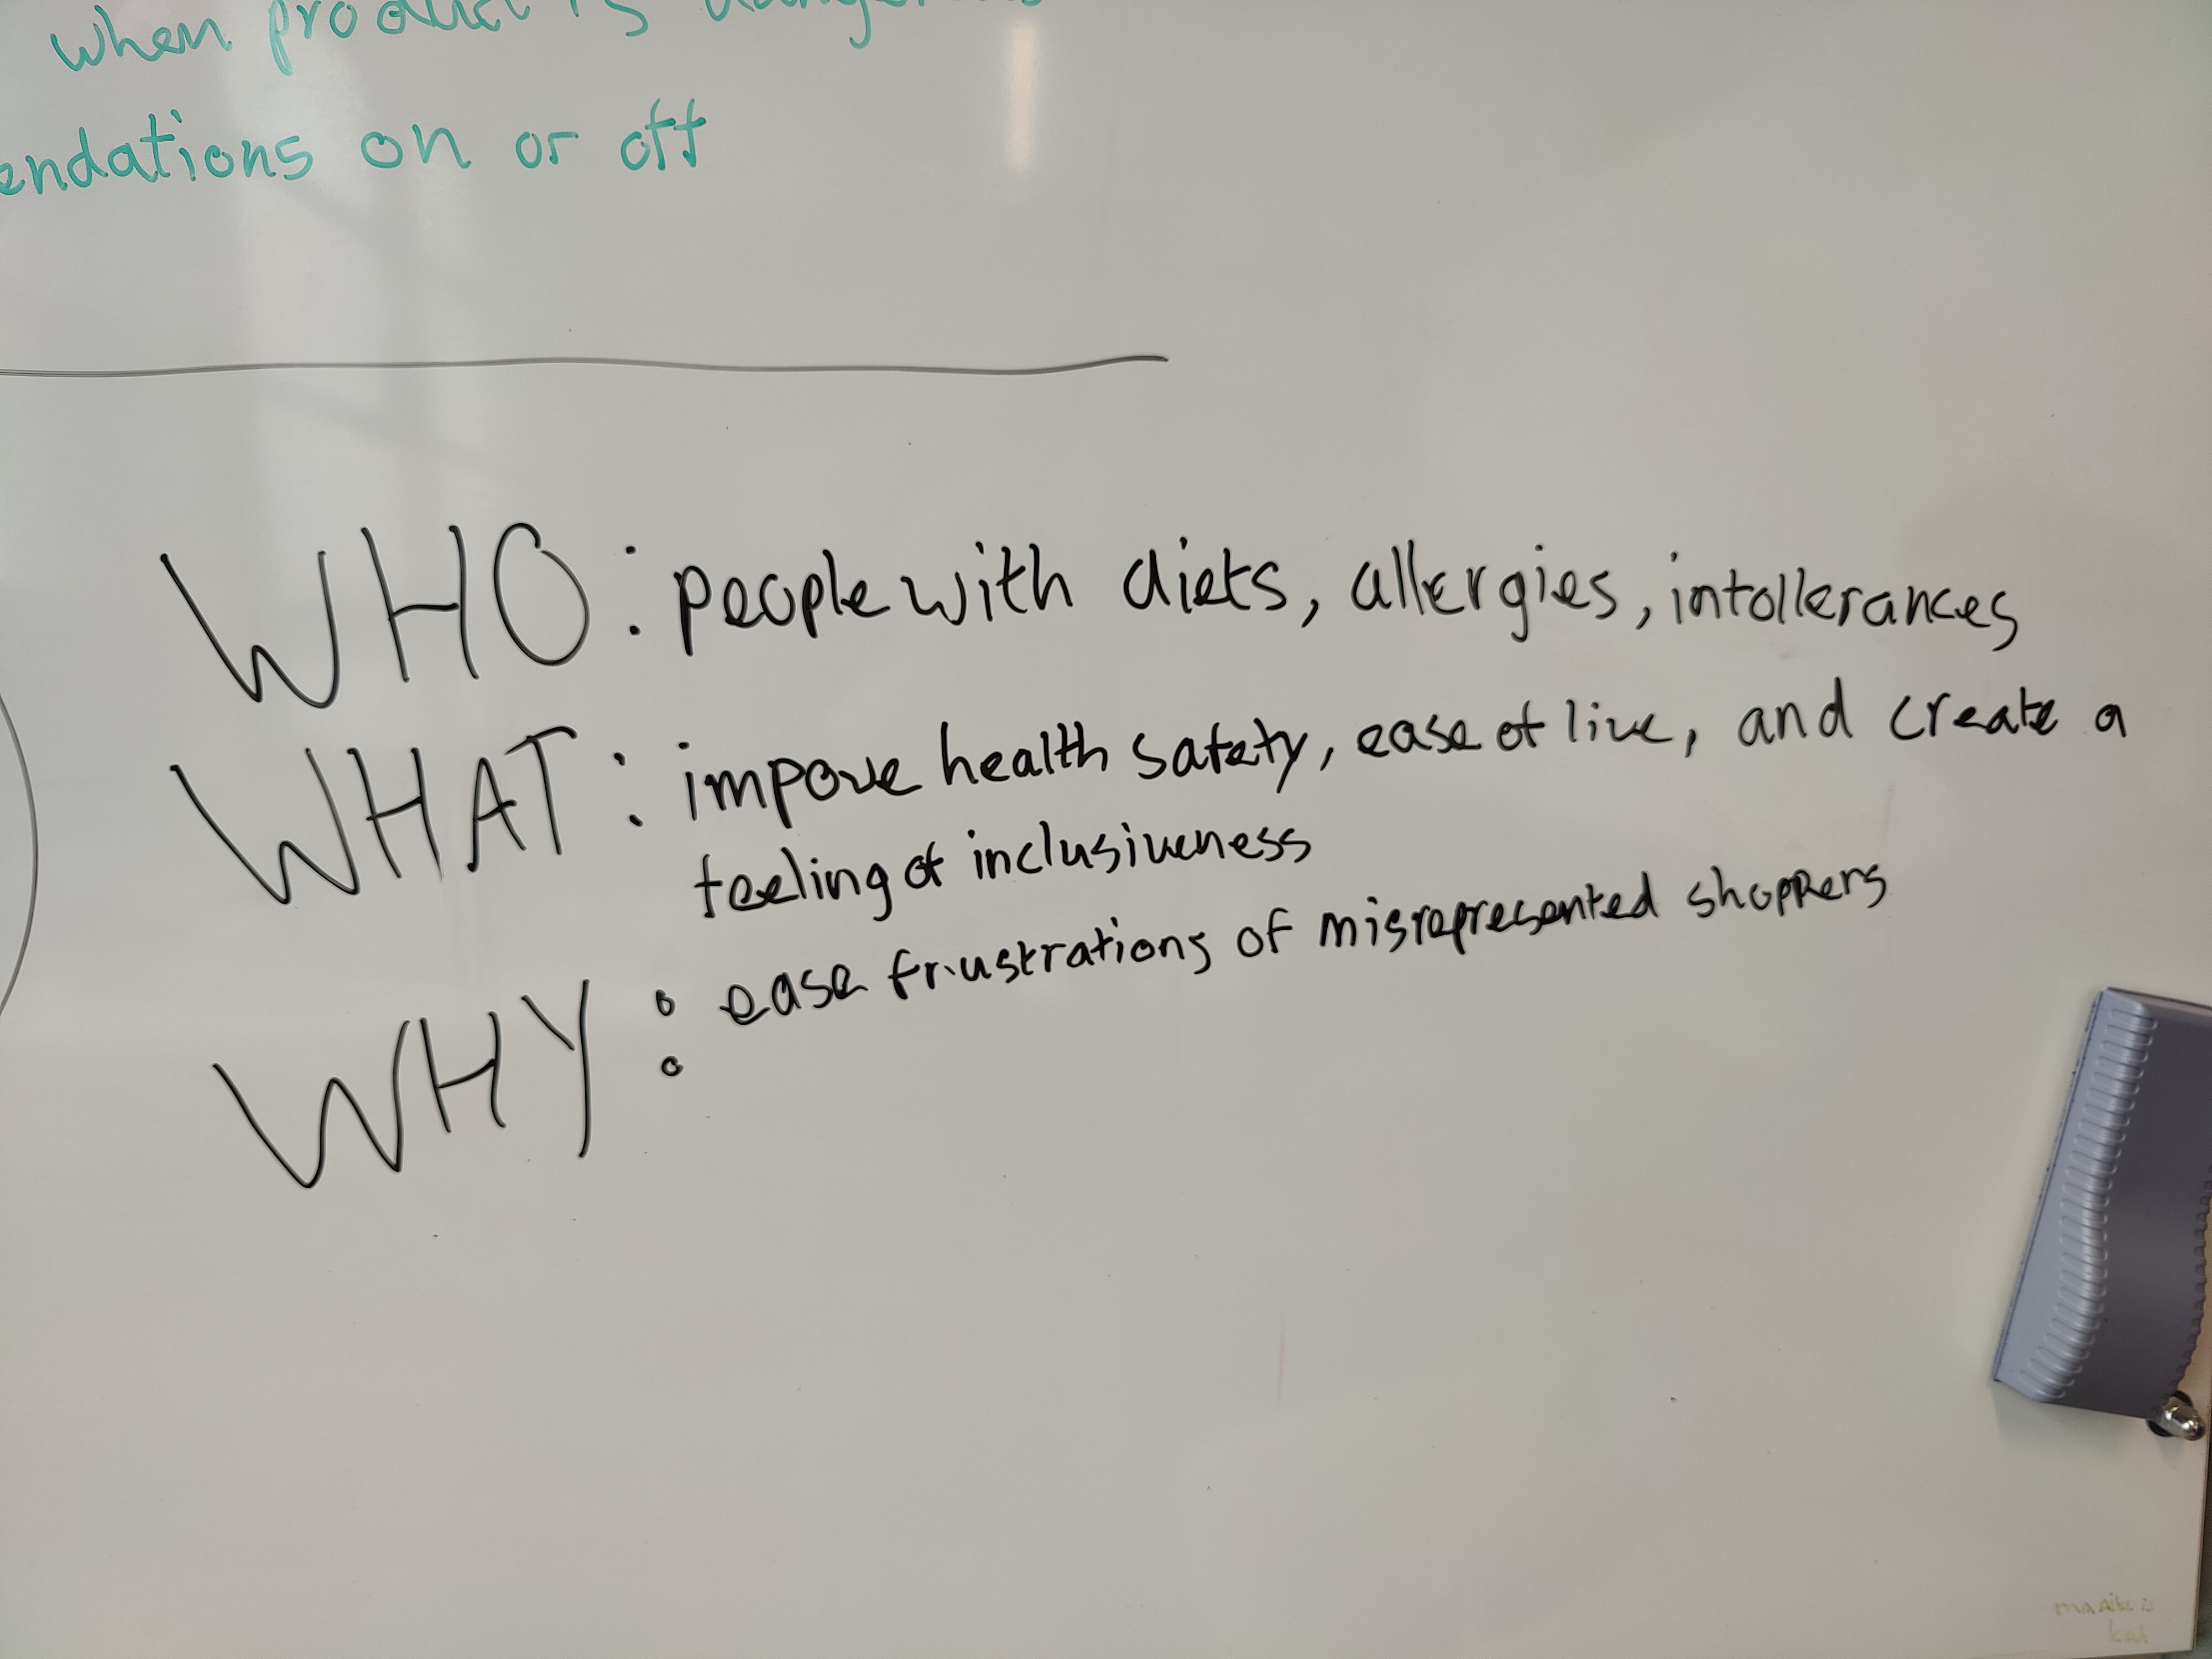 when product is
endations on or off
WHO: people with diets, allergies, intollerances
WHAT: impove health safety, ease of live, and create a
feeling of inclusiveness
WHY: ease frustrations of misrepresented shoppers